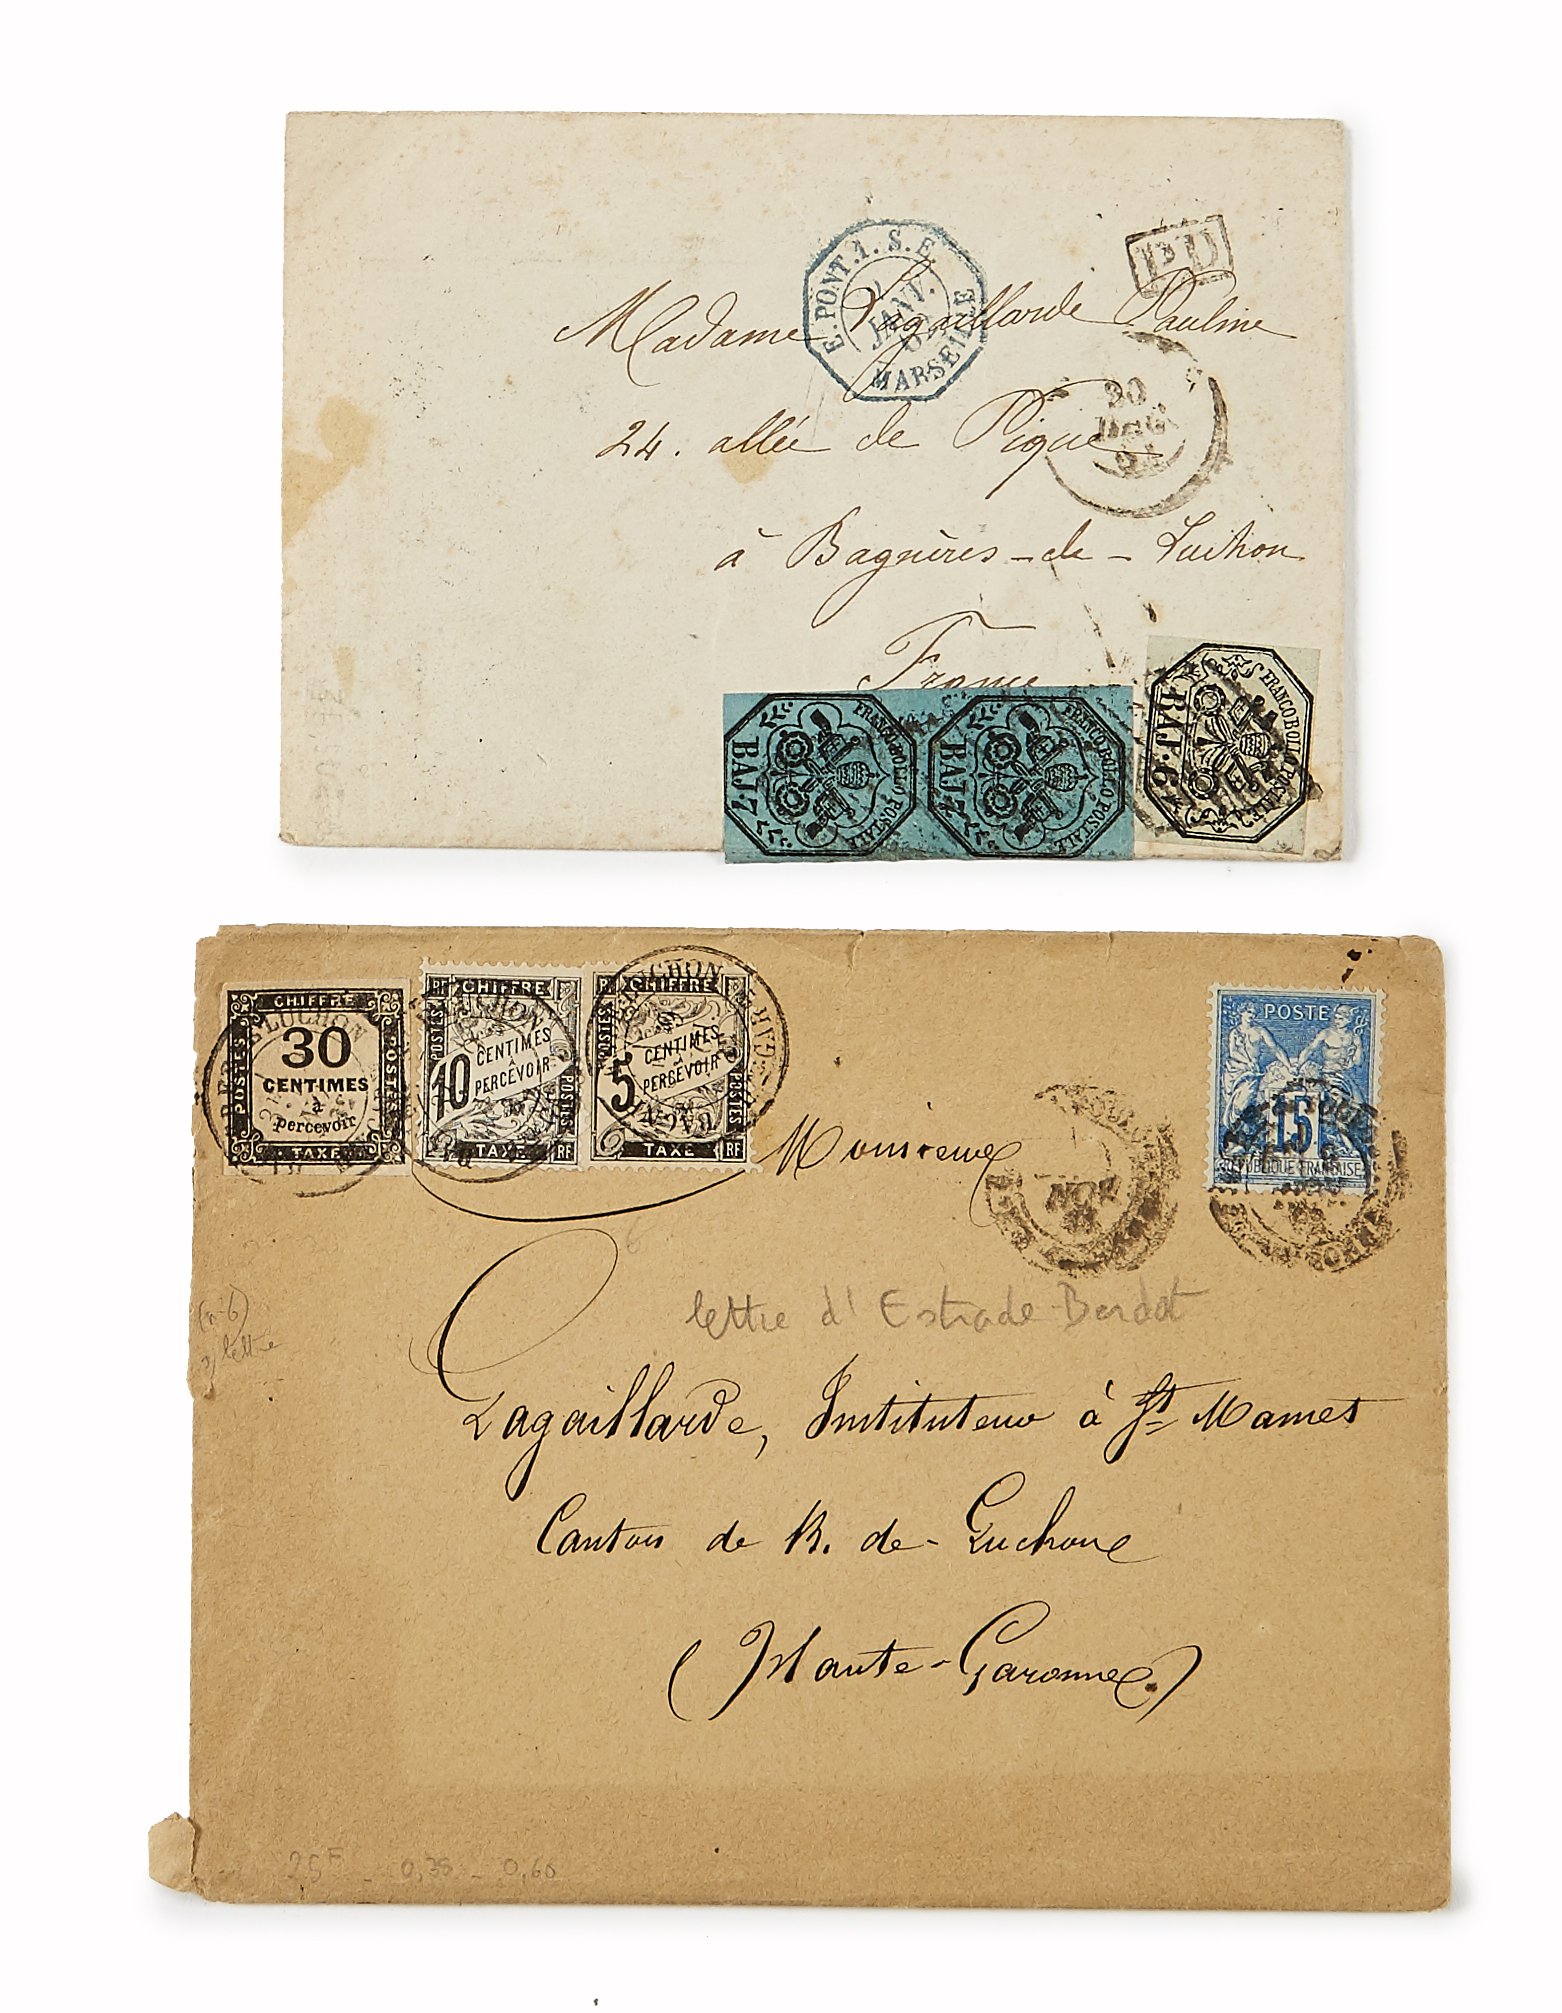 E. PONT. 1. S. E.
JANV.
MARSEILLE
P.D
Madame Lagaillarde Pauline
20
DEC
24. allée de Pique
à Bagnères-de-Luchon
France
FRANCO BOLLO POSTALE
BAJ. 7
FRANCO BOLLO POSTALE
BAJ. 7
FRANCO BOLLO POSTALE
BAJ. 6
CHIFFRE
POSTES
30
CENTIMES
à
percevoir
POSTES
TAXE
RF CHIFFRE
POSTES
10
CENTIMES
À
PERCEVOIR
POSTES
TAXE RF
CHIFFRE
POSTES
5
CENTIMES
À
PERCEVOIR
POSTES
TAXE RF
LUCHON
LUCHON
LUCHON
POSTE
15
REPUBLIQUE FRANÇAISE
NOV
Monsieur
lettre d'Estrade-Berdot
(n-6)
lettre
Lagaillarde, Instituteur à St Mamet
Canton de B. de-Luchon
(Haute-Garonne.)
25F - 0,35 - 0,60